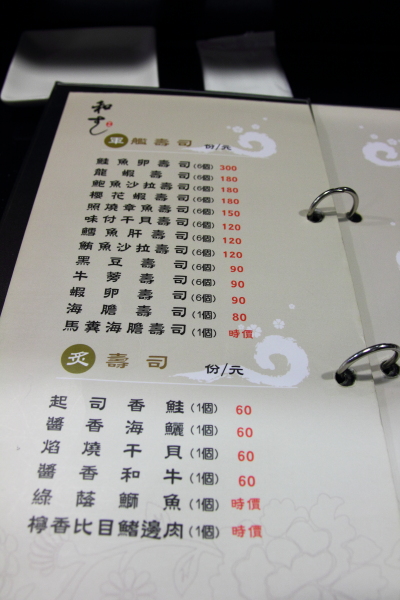 和すし
軍艦壽司 份/元
鮭魚卵壽司(6個) 300
龍蝦壽司(6個) 180
鮑魚沙拉壽司(6個) 180
櫻花蝦壽司(6個) 180
照燒章魚壽司(6個) 150
味付干貝壽司(6個) 120
鱈魚肝壽司(6個) 120
鮪魚沙拉壽司(6個) 120
黑豆壽司(6個) 90
牛蒡壽司(6個) 90
蝦卵壽司(6個) 90
海膽壽司(1個) 80
馬糞海膽壽司(1個) 時價
炙壽司 份/元
起司香鮭(1個) 60
醬香海鱺(1個) 60
焰燒干貝(1個) 60
醬香和牛(1個) 60
綠蔭鰤魚(1個) 時價
檸香比目鰭邊肉(1個) 時價